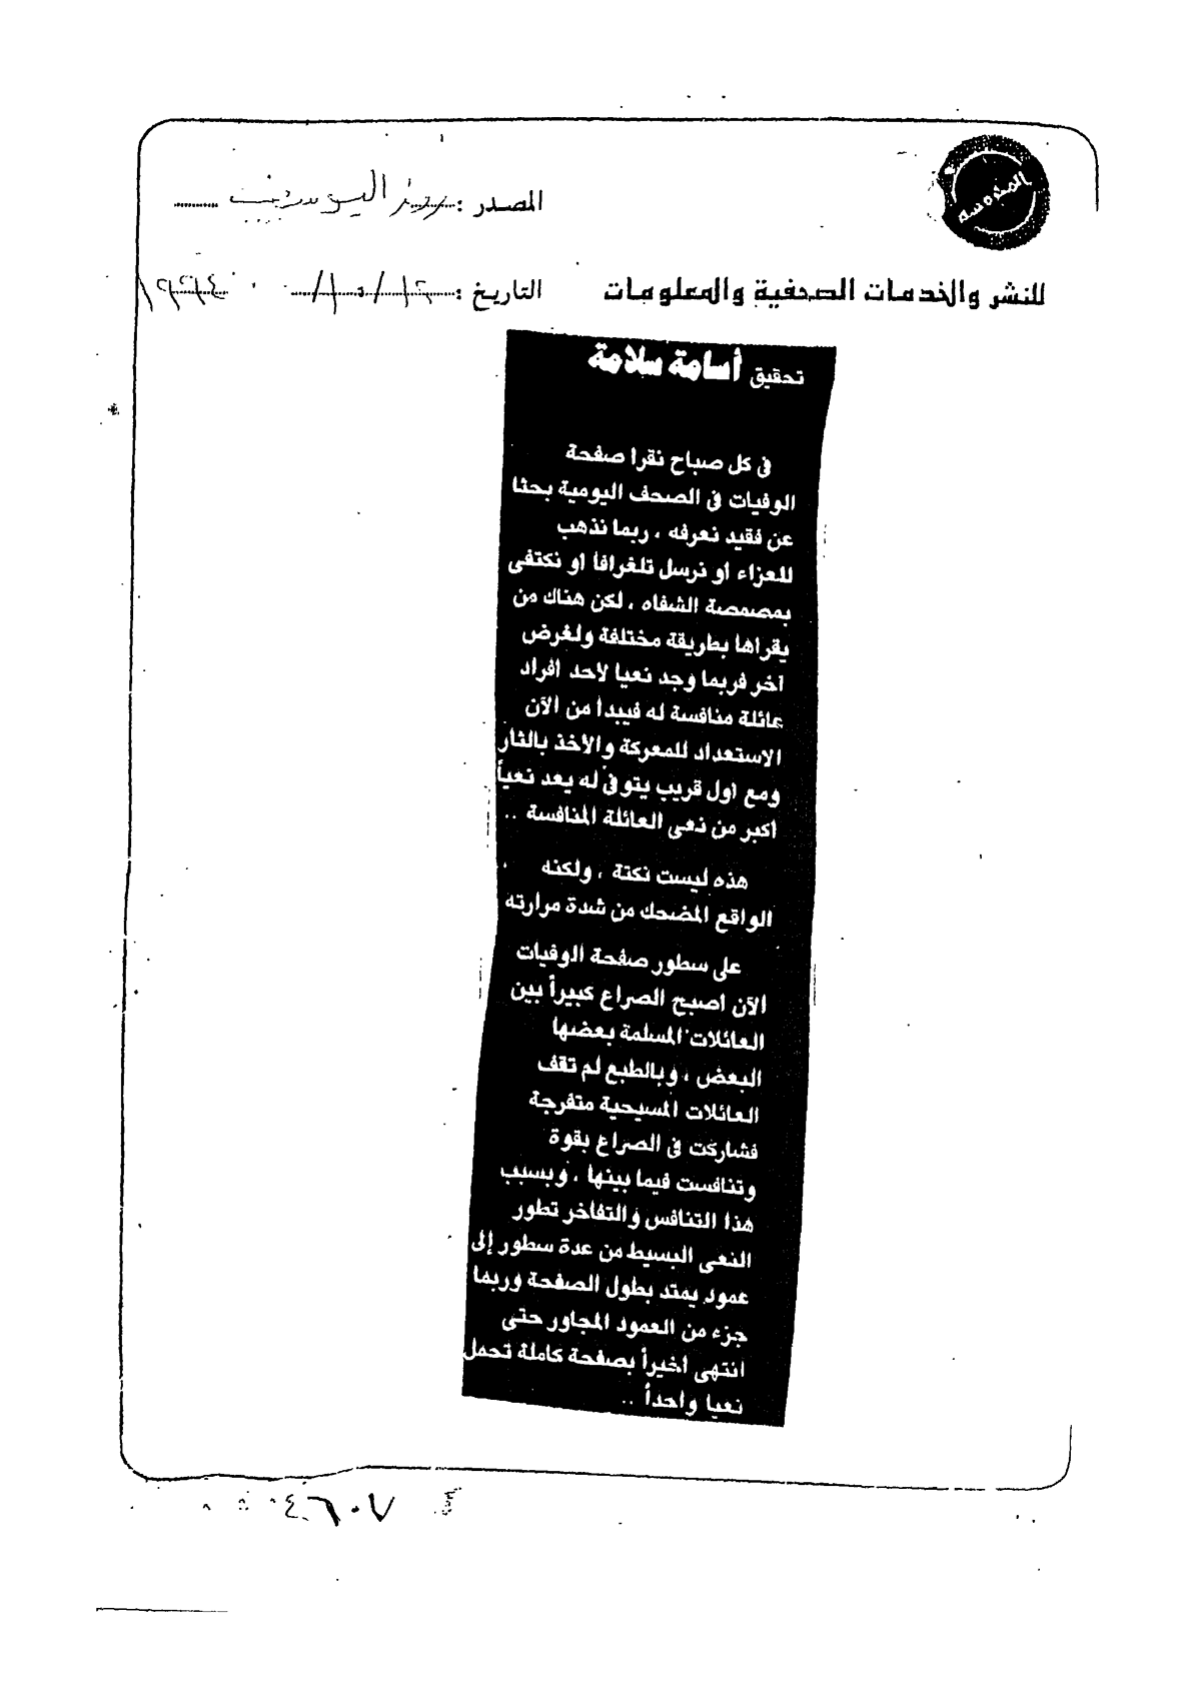 المصدر : روز اليوسف
للنشر والخدمات الصحفية والمعلومات
التاريخ :
تحقيق أسامة سلامة
فى كل صباح نقرا صفحة
الوفيات فى الصحف اليومية بحثا
عن فقيد نعرفه ، ربما نذهب
للعزاء او نرسل تلغرافا او نكتفى
بمصمصة الشفاه ، لكن هناك من
يقراها بطريقة مختلفة ولغرض
آخر فربما وجد نعيا لاحد افراد
عائلة منافسة له فيبدا من الآن
الاستعداد للمعركة والأخذ بالثار
ومع اول قريب يتوفى له يعد نعياً
اكبر من نعى العائلة المنافسة ..
هذه ليست نكتة ، ولكنه
الواقع المضحك من شدة مرارته
على سطور صفحة الوفيات
الآن اصبح الصراع كبيراً بين
العائلات المسلمة بعضها
البعض ، وبالطبع لم تقف
العائلات المسيحية متفرجة
فشاركت فى الصراع بقوة
وتنافست فيما بينها ، وبسبب
هذا التنافس والتفاخر تطور
النعى البسيط من عدة سطور إلى
عمود يمتد بطول الصفحة وربما
جزء من العمود المجاور حتى
انتهى اخيراً بصفحة كاملة تحمل
نعيا واحداً ..